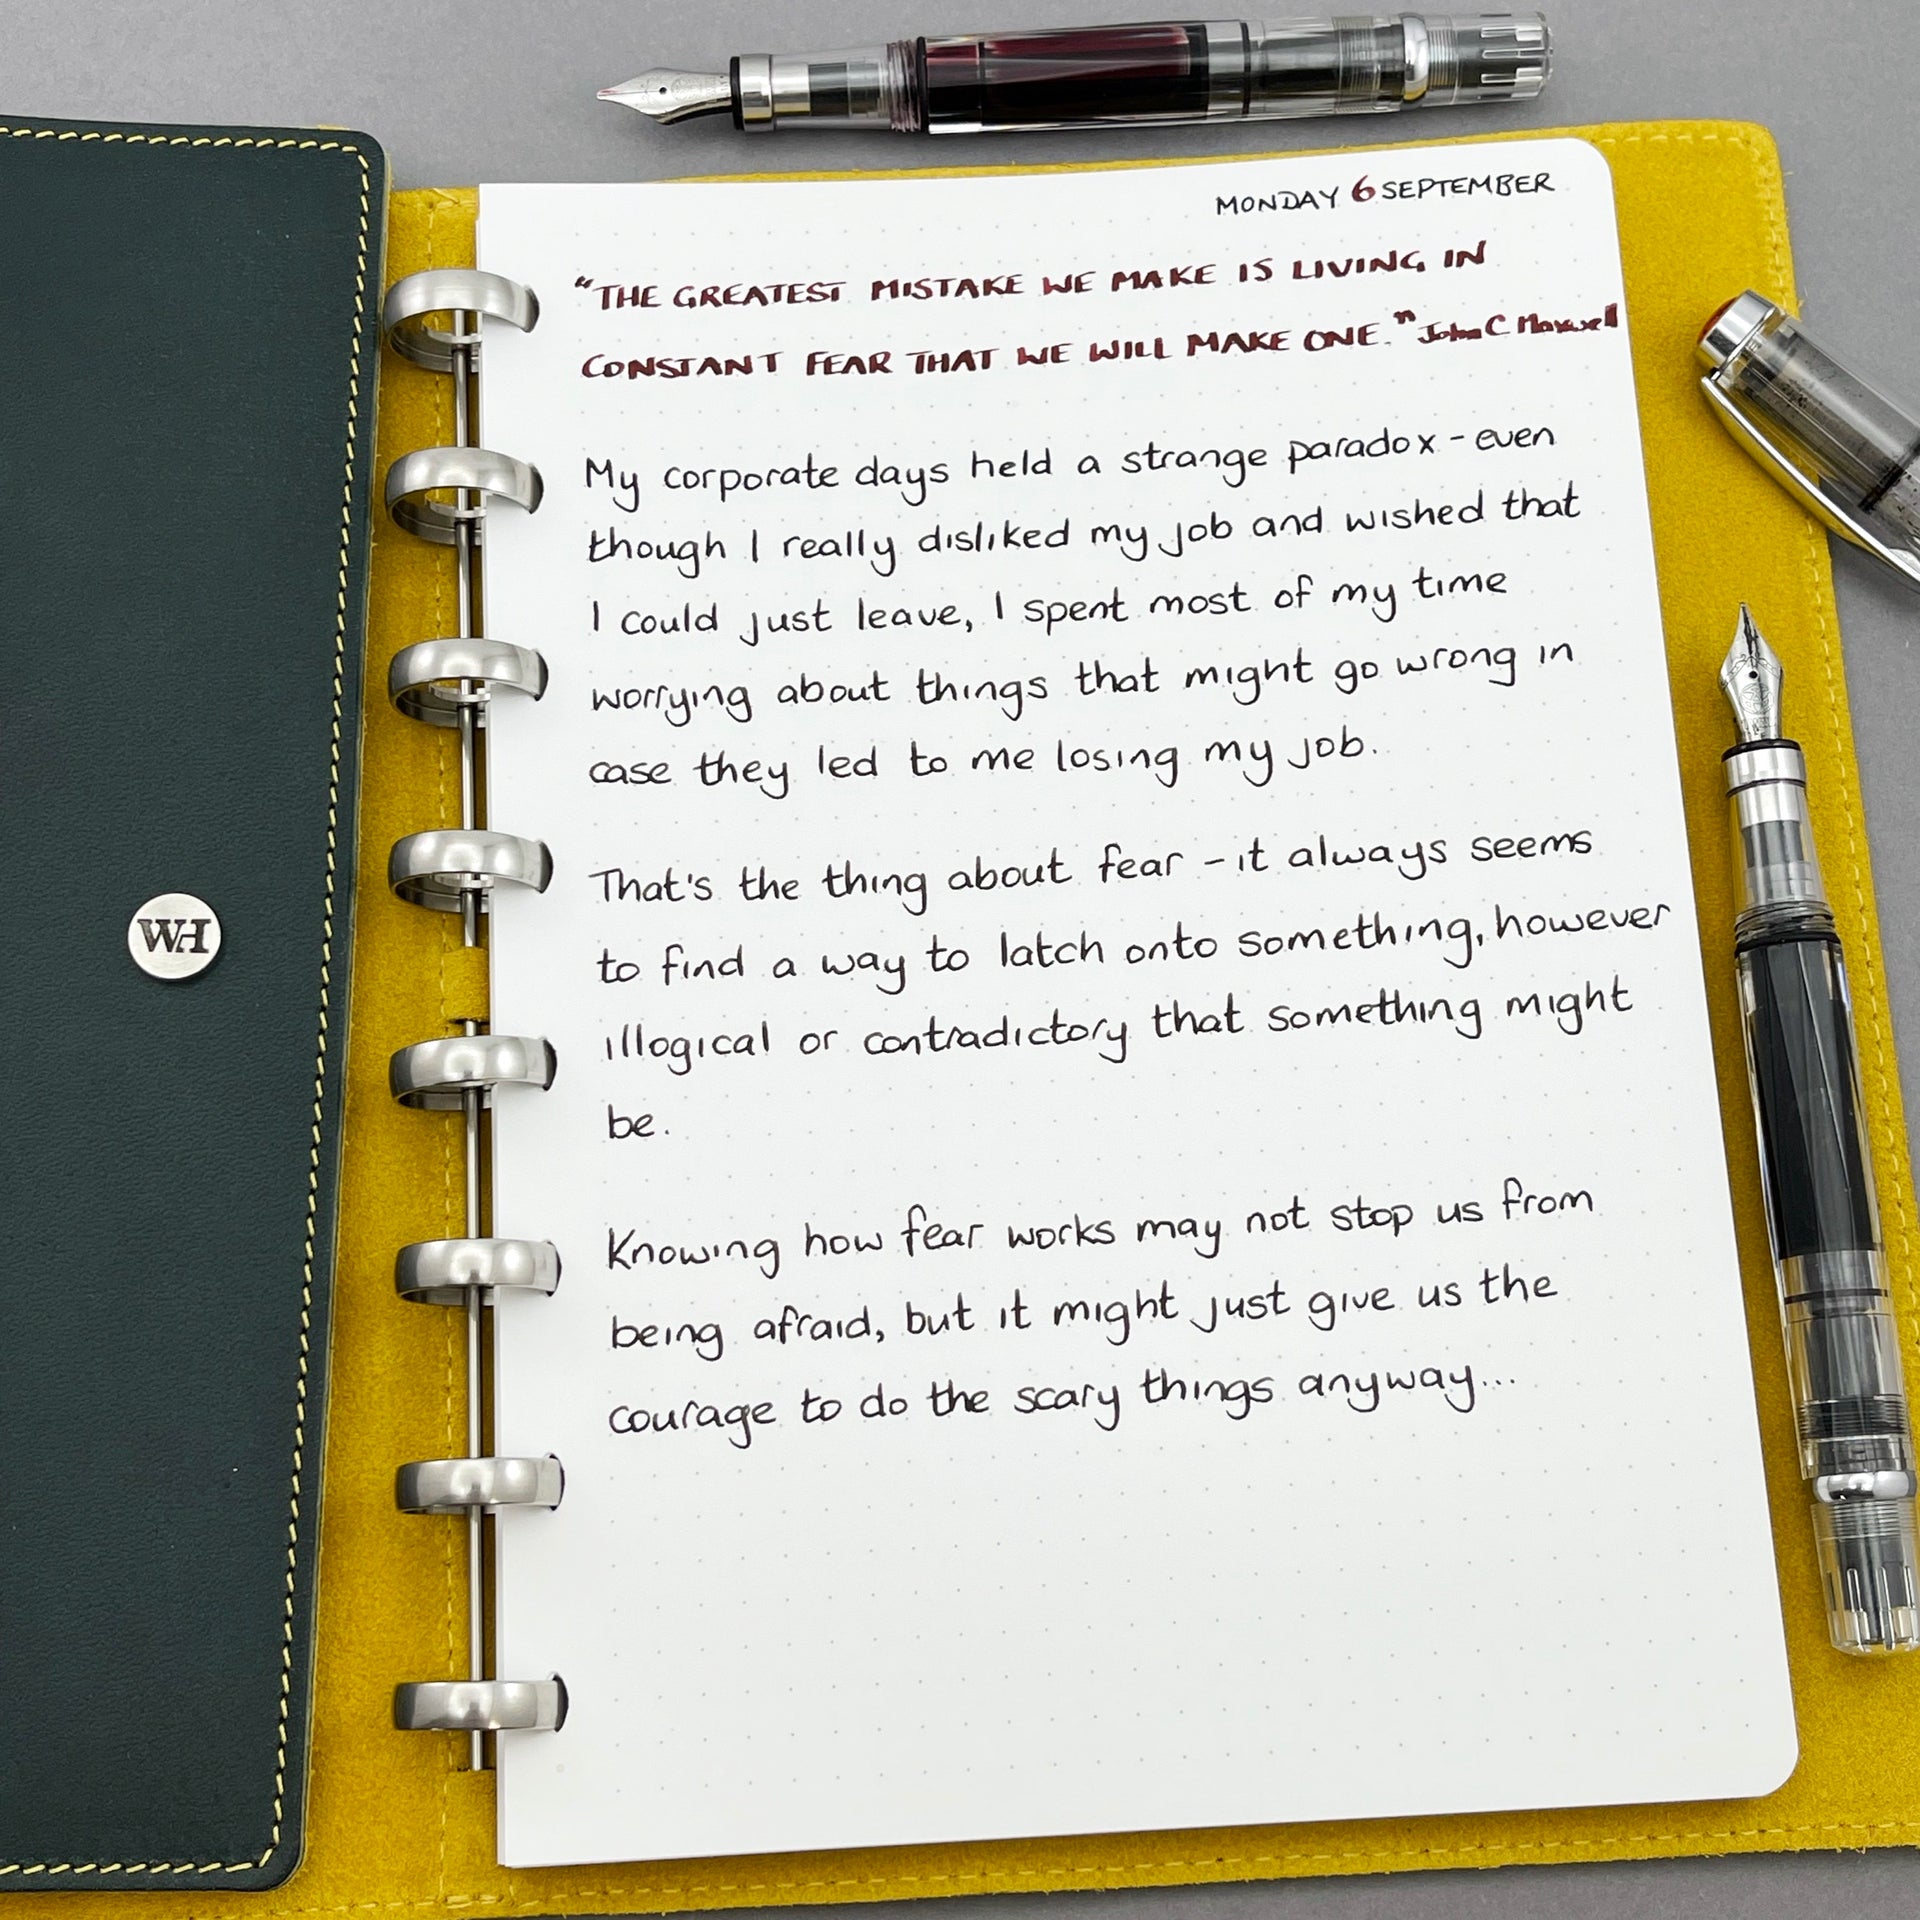 MONDAY 6 SEPTEMBER
"THE GREATEST MISTAKE WE MAKE IS LIVING IN
CONSTANT FEAR THAT WE WILL MAKE ONE." John C Maxwell
My corporate days held a strange paradox - even
though I really disliked my job and wished that
I could just leave, I spent most of my time
worrying about things that might go wrong in
case they led to me losing my job.
That's the thing about fear - it always seems
to find a way to latch onto something, however
illogical or contradictory that something might
be.
Knowing how fear works may not stop us from
being afraid, but it might just give us the
courage to do the scary things anyway...
WH